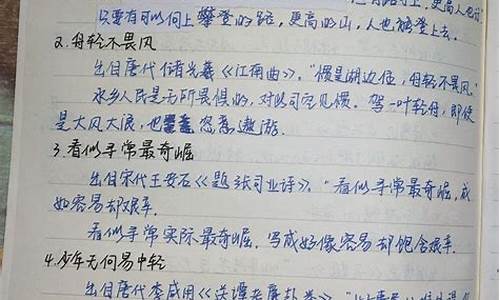 更高人也
只要有可以向上攀登的路，更高的山，人也能登上去。
2.舟轻不畏风
出自唐代储光羲《江南曲》。“惯是湖边住，舟轻不畏风。”
水乡人民是无所畏惧的，对此司空见惯。驾一叶轻舟，即使
是大风大浪，也恣意遨游.
3.看似寻常最奇崛
出自宋代王安石《题张司业诗》。“看似寻常最奇崛，成
如容易却艰辛。
看似寻常实际最奇崛。写成好像容易却饱含艰辛.
4.少年无何易中轻
出自唐代李咸用《送谭孝廉赴举》